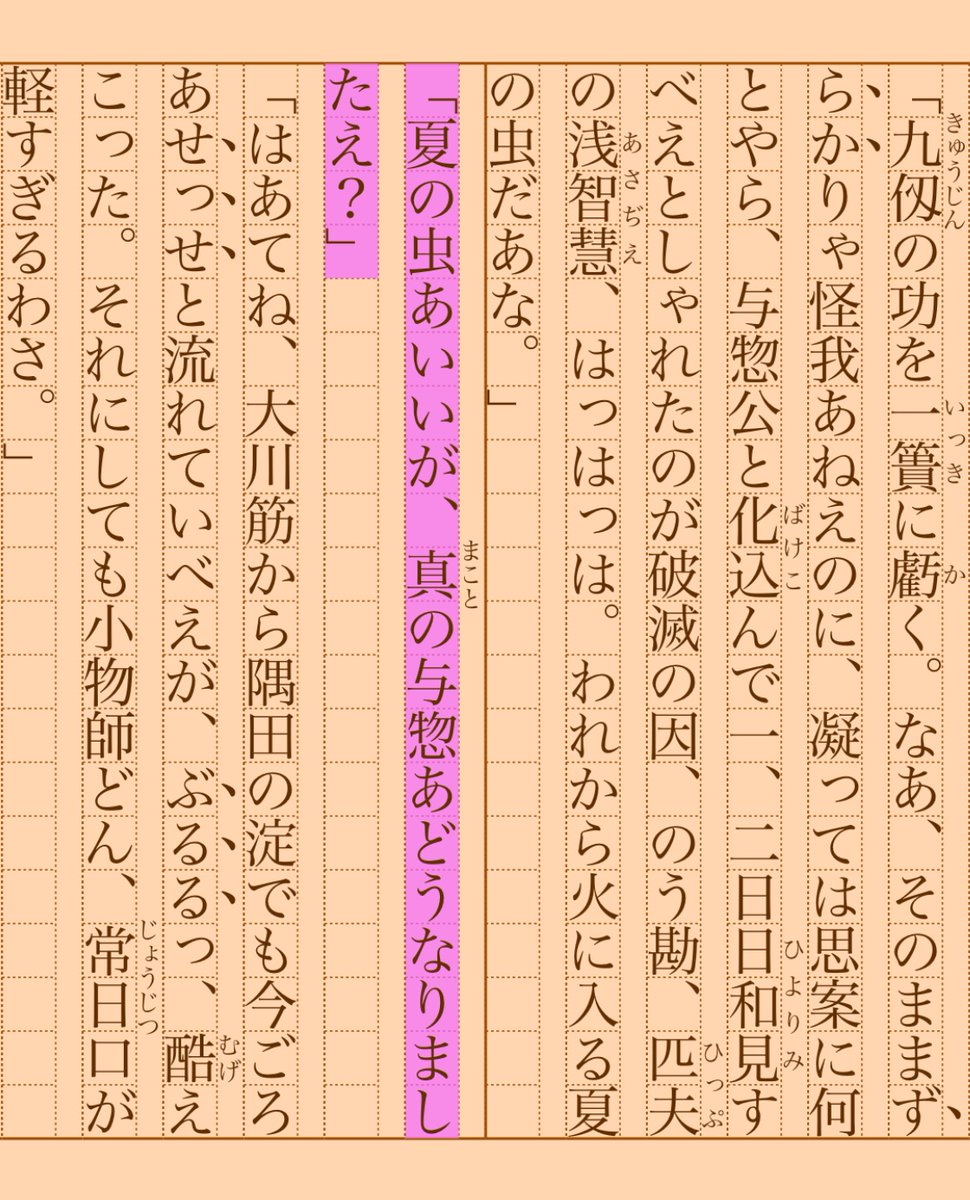 「九仭の功を一簣に虧く。なあ、そのまま​ず
らかりゃ怪我あねえのに、凝っては思案に何
とやら、与惣公と化込んで一、二日日和見す
べえとしゃれたのが破滅の因、のう勘、匹夫
の浅智慧、はっはっは。われから火に入る夏
の虫だあな。」
「夏の虫あいいが、真の与惣あどうなりまし
たえ？」
「はあてね、大川筋から隅田の淀でも今ごろ
あせっせと流れていべえが、ぶるるっ、酷え
こった。それにしても小物師どん、常日口が
軽すぎるわさ。」